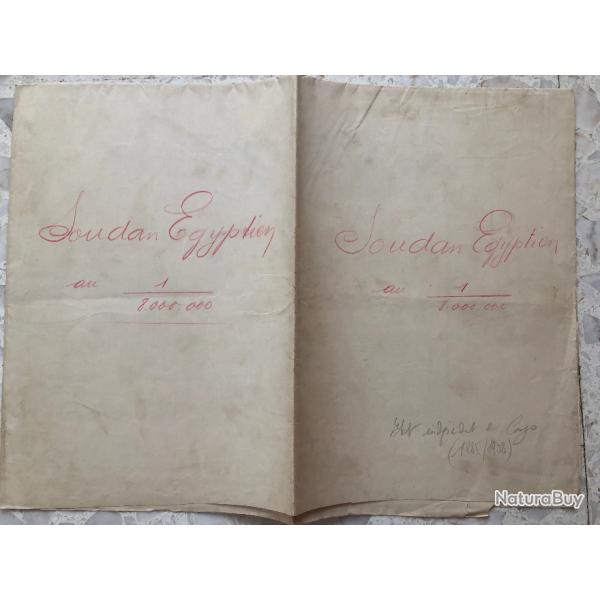 Soudan Egyptien
au 1
8.000.000
Soudan Egyptien
au 1
8.000.000
Etat indépendt du Congo
(1885/1908)
NaturaBuy